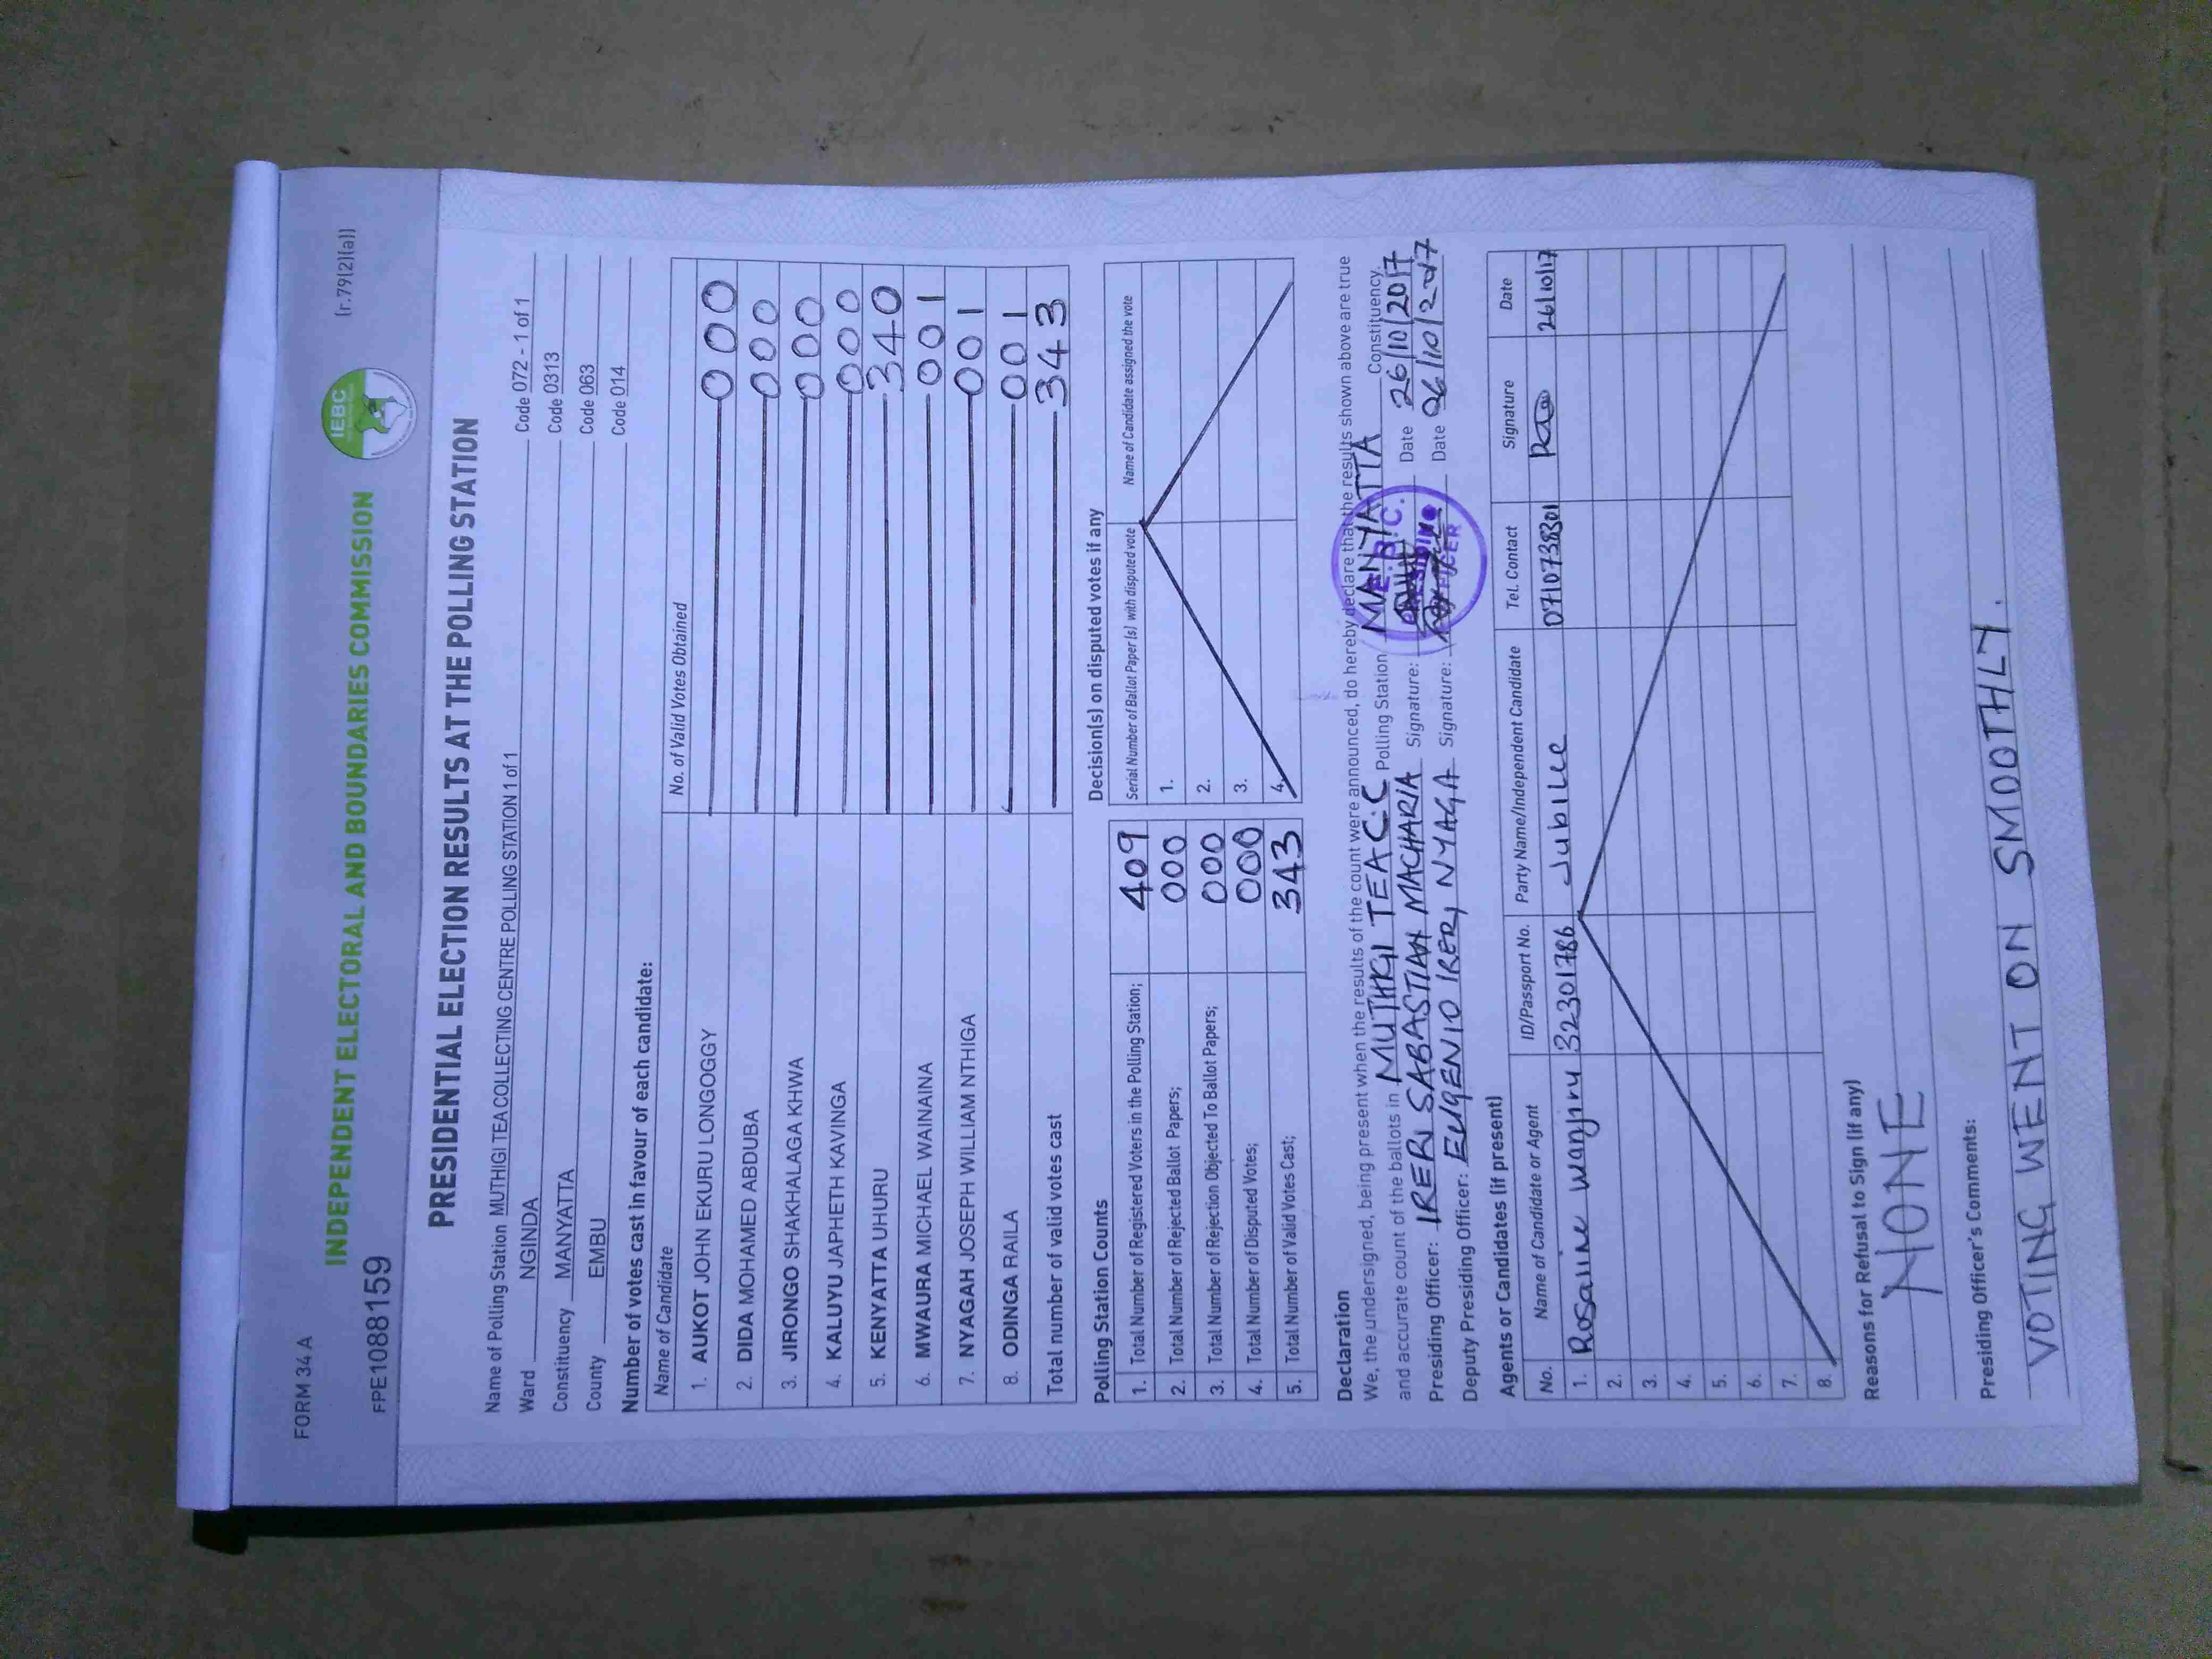 FORM 34 A
(r.79(2)(a))
IEBC
INDEPENDENT ELECTORAL AND BOUNDARIES COMMISSION
FPE1088159
PRESIDENTIAL ELECTION RESULTS AT THE POLLING STATION
Name of Polling Station MUTHIGI TEA COLLECTING CENTRE POLLING STATION 1 of 1 Code 072 - 1 of 1
Ward NGINDA Code 0313
Constituency MANYATTA Code 063
County EMBU Code 014
Number of votes cast in favour of each candidate:
Name of Candidate No. of Valid Votes Obtained
1. AUKOT JOHN EKURU LONGOGGY 000
2. DIDA MOHAMED ABDUBA 000
3. JIRONGO SHAKHALAGA KHWA 000
4. KALUYU JAPHETH KAVINGA 000
5. KENYATTA UHURU 340
6. MWAURA MICHAEL WAINAINA 001
7. NYAGAH JOSEPH WILLIAM NTHIGA 001
8. ODINGA RAILA 001
Total number of valid votes cast 343
Polling Station Counts
1. Total Number of Registered Voters in the Polling Station; 409
2. Total Number of Rejected Ballot Papers; 000
3. Total Number of Rejection Objected To Ballot Papers; 000
4. Total Number of Disputed Votes; 000
5. Total Number of Valid Votes Cast; 343
Decision(s) on disputed votes if any
Serial Number of Ballot Paper(s) with disputed vote Name of Candidate assigned the vote
1.
2.
3.
4.
Declaration
We, the undersigned, being present when the results of the count were announced, do hereby declare that the results shown above are true
and accurate count of the ballots in MUTHIGI TEA C.C Polling Station MANYATTA Constituency.
Presiding Officer: IRERI SABASTIAN MACHARIA Signature: Date 26/10/2017
Deputy Presiding Officer: EUGENIO IRERI NYAGA Signature: Date 26/10/2017
Agents or Candidates (if present)
No. Name of Candidate or Agent ID/Passport No. Party Name/Independent Candidate Tel. Contact Signature Date
1. Rosaline Wanjiru 32301786 Jubilee 0710738301 26/10/17
2.
3.
4.
5.
6.
7.
8.
Reasons for Refusal to Sign (if any)
NONE
Presiding Officer's Comments:
VOTING WENT ON SMOOTHLY.